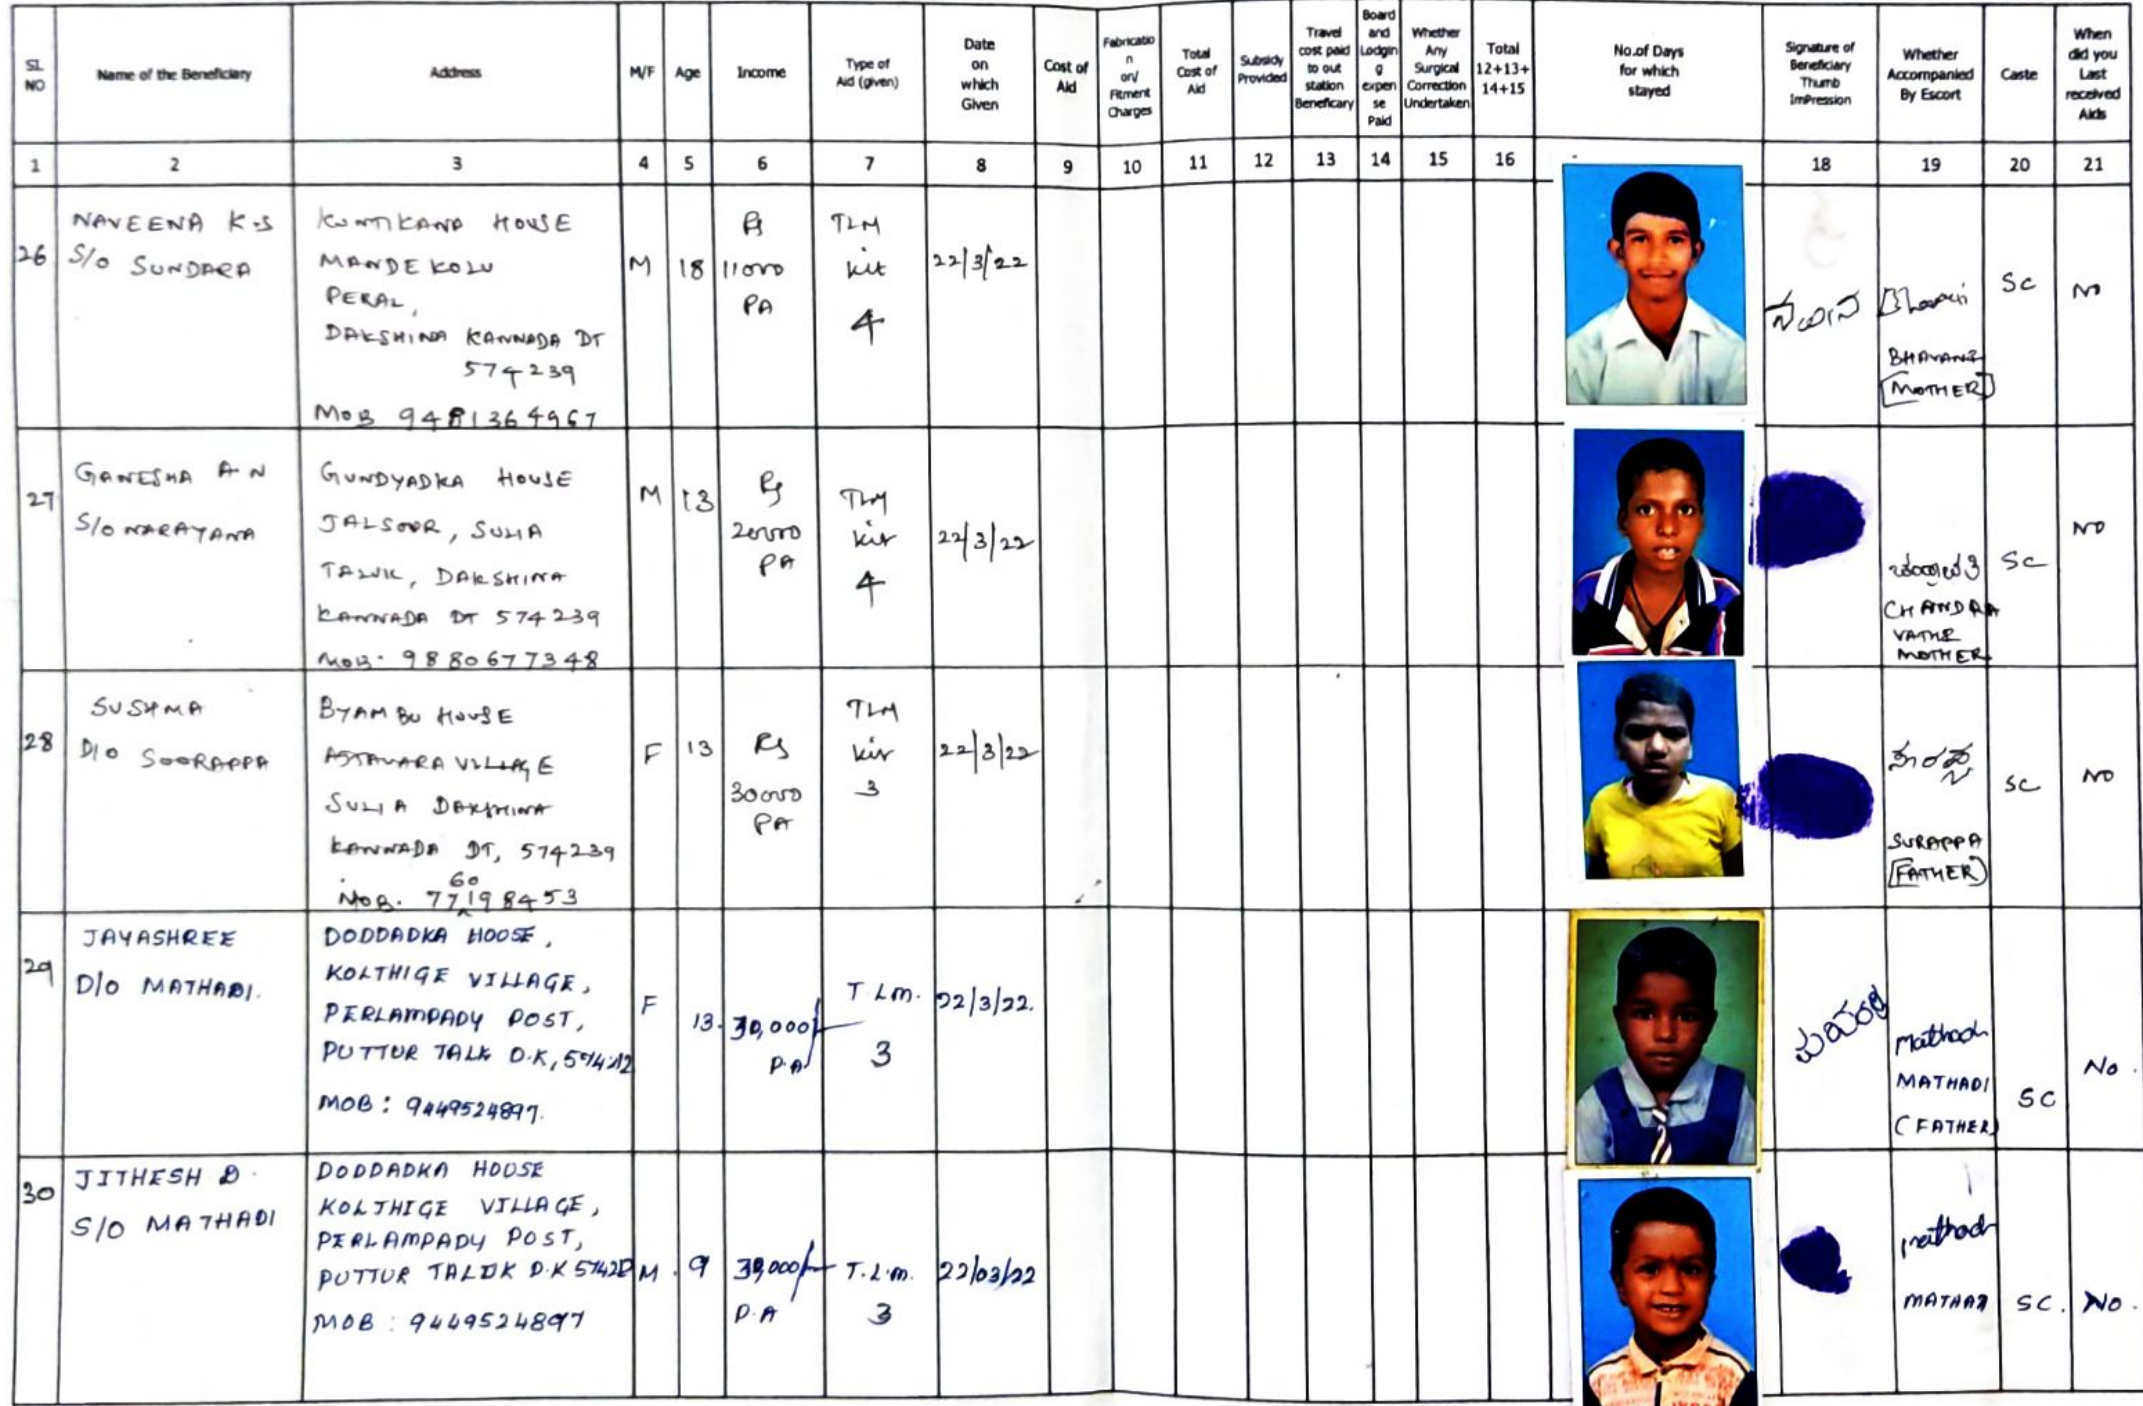 SL NO
Name of the Beneficiary
Address
M/F
Age
Income
Type of Aid (given)
Date on which Given
Cost of Aid
Fabricatio n on/ Fitment Charges
Total Cost of Aid
Subsidy Provided
Travel cost paid to out station Beneficary
Board and Lodgin g expen se Paid
Whether Any Surgical Correction Undertaken
Total 12+13+ 14+15
No.of Days for which stayed
Signature of Beneficiary Thumb ImPression
Whether Accompanied By Escort
Caste
When did you Last received Aids
1 2 3 4 5 6 7 8 9 10 11 12 13 14 15 16 18 19 20 21
26
NAVEENA K.S
S/O SUNDARA
KUNTIKANA HOUSE
MANDEKOLU
PERAL,
DAKSHINA KANNADA DT
574239
MOB 9481364967
M
18
Rs
11000
PA
TLM
kit
4
22/3/22
ನವೀನ
BHAVANI
[MOTHER]
SC
NO
27
GANESHA A N
S/O NARAYANA
GUNDYADKA HOUSE
JALSOOR, SULIA
TALUK, DAKSHINA
KANNADA DT 574239
MOB. 9880677348
M
13
Rs
20000
PA
TLM
kit
4
22/3/22
CHANDRA
VATHI
MOTHER
SC
NO
28
SUSHMA
D/O SOORAPPA
BYAMBU HOUSE
VILLAGE
SULIA DAKSHINA
KANNADA DT, 574239
60
MOB. 77198453
F
13
Rs
30000
PA
TLM
kit
3
22/3/22
SURAPPA
[FATHER]
SC
NO
29
JAYASHREE
D/O MATHADI.
DODDADKA HOUSE,
KOLTHIGE VILLAGE,
PERLAMPADY POST,
PUTTUR TALK D.K,
MOB: 9449524897.
F
13.
30,000/-
P.A
T Lm.
3
22/3/22.
Mathadi
MATHADI
(FATHER)
SC
No.
30
JITHESH D.
S/O MATHADI
DODDADKA HOUSE
KOLTHIGE VILLAGE,
PERLAMPADY POST,
PUTTUR TALUK D.K
MOB: 9449524897
M.
9
30,000/-
P.A
T.L.m.
3
22/03/22
SC.
No.